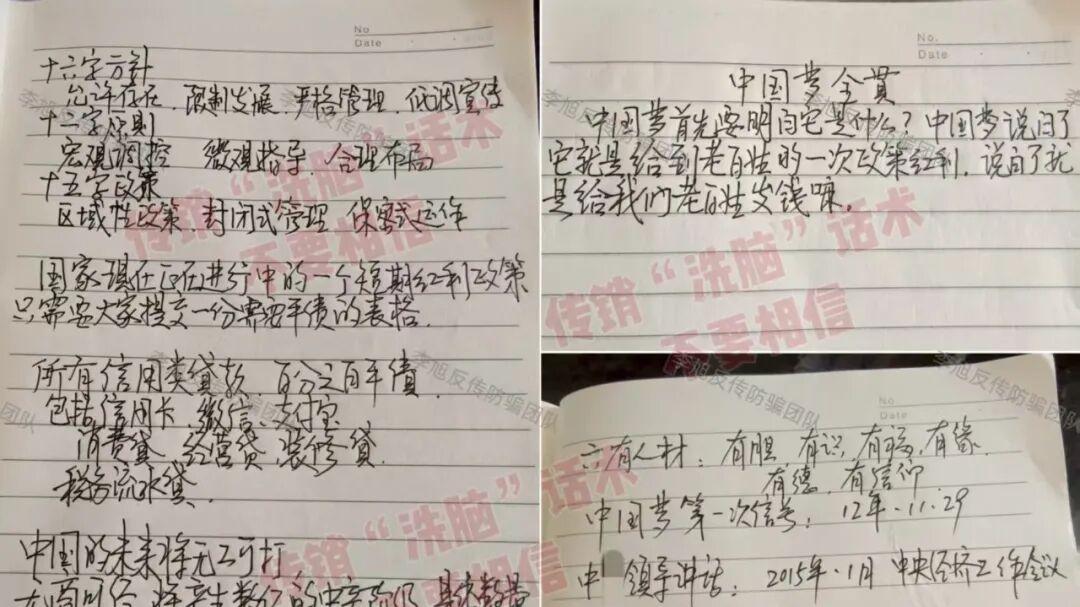 No
Date
十六字方针
允许存在、限制发展、严格管理、低调宣传
十二字原则
宏观调控 微观指导、合理布局
十五字政策
区域性政策、封闭式管理 保密式运作
国家现在正在进行中的一个短期红利政策
只需要大家提交一份需要平债的表格.
所有信用类贷款 百分之百平债
包括信用卡、微信、支付宝
消费贷 经营贷、装修贷
税务流水贷、
中国的未来将无工可打
传销“洗脑”话术
不要相信
传销“洗脑”话术
李旭反传防骗团队
No.
Date
中国梦全贯
中国梦首先要明白它是什么？中国梦说白了
它就是给到老百姓的一次政策红利，说白了就
是给我们老百姓发钱嘛，
传销“洗脑”话术
不要相信
李旭反传防骗团队
No
Date
六有人材：有胆、有识、有福、有缘、
有德、有信仰
中国梦第一次信号：12年.11.29
中 领导讲话：2015年.1月 中央经济工作会议